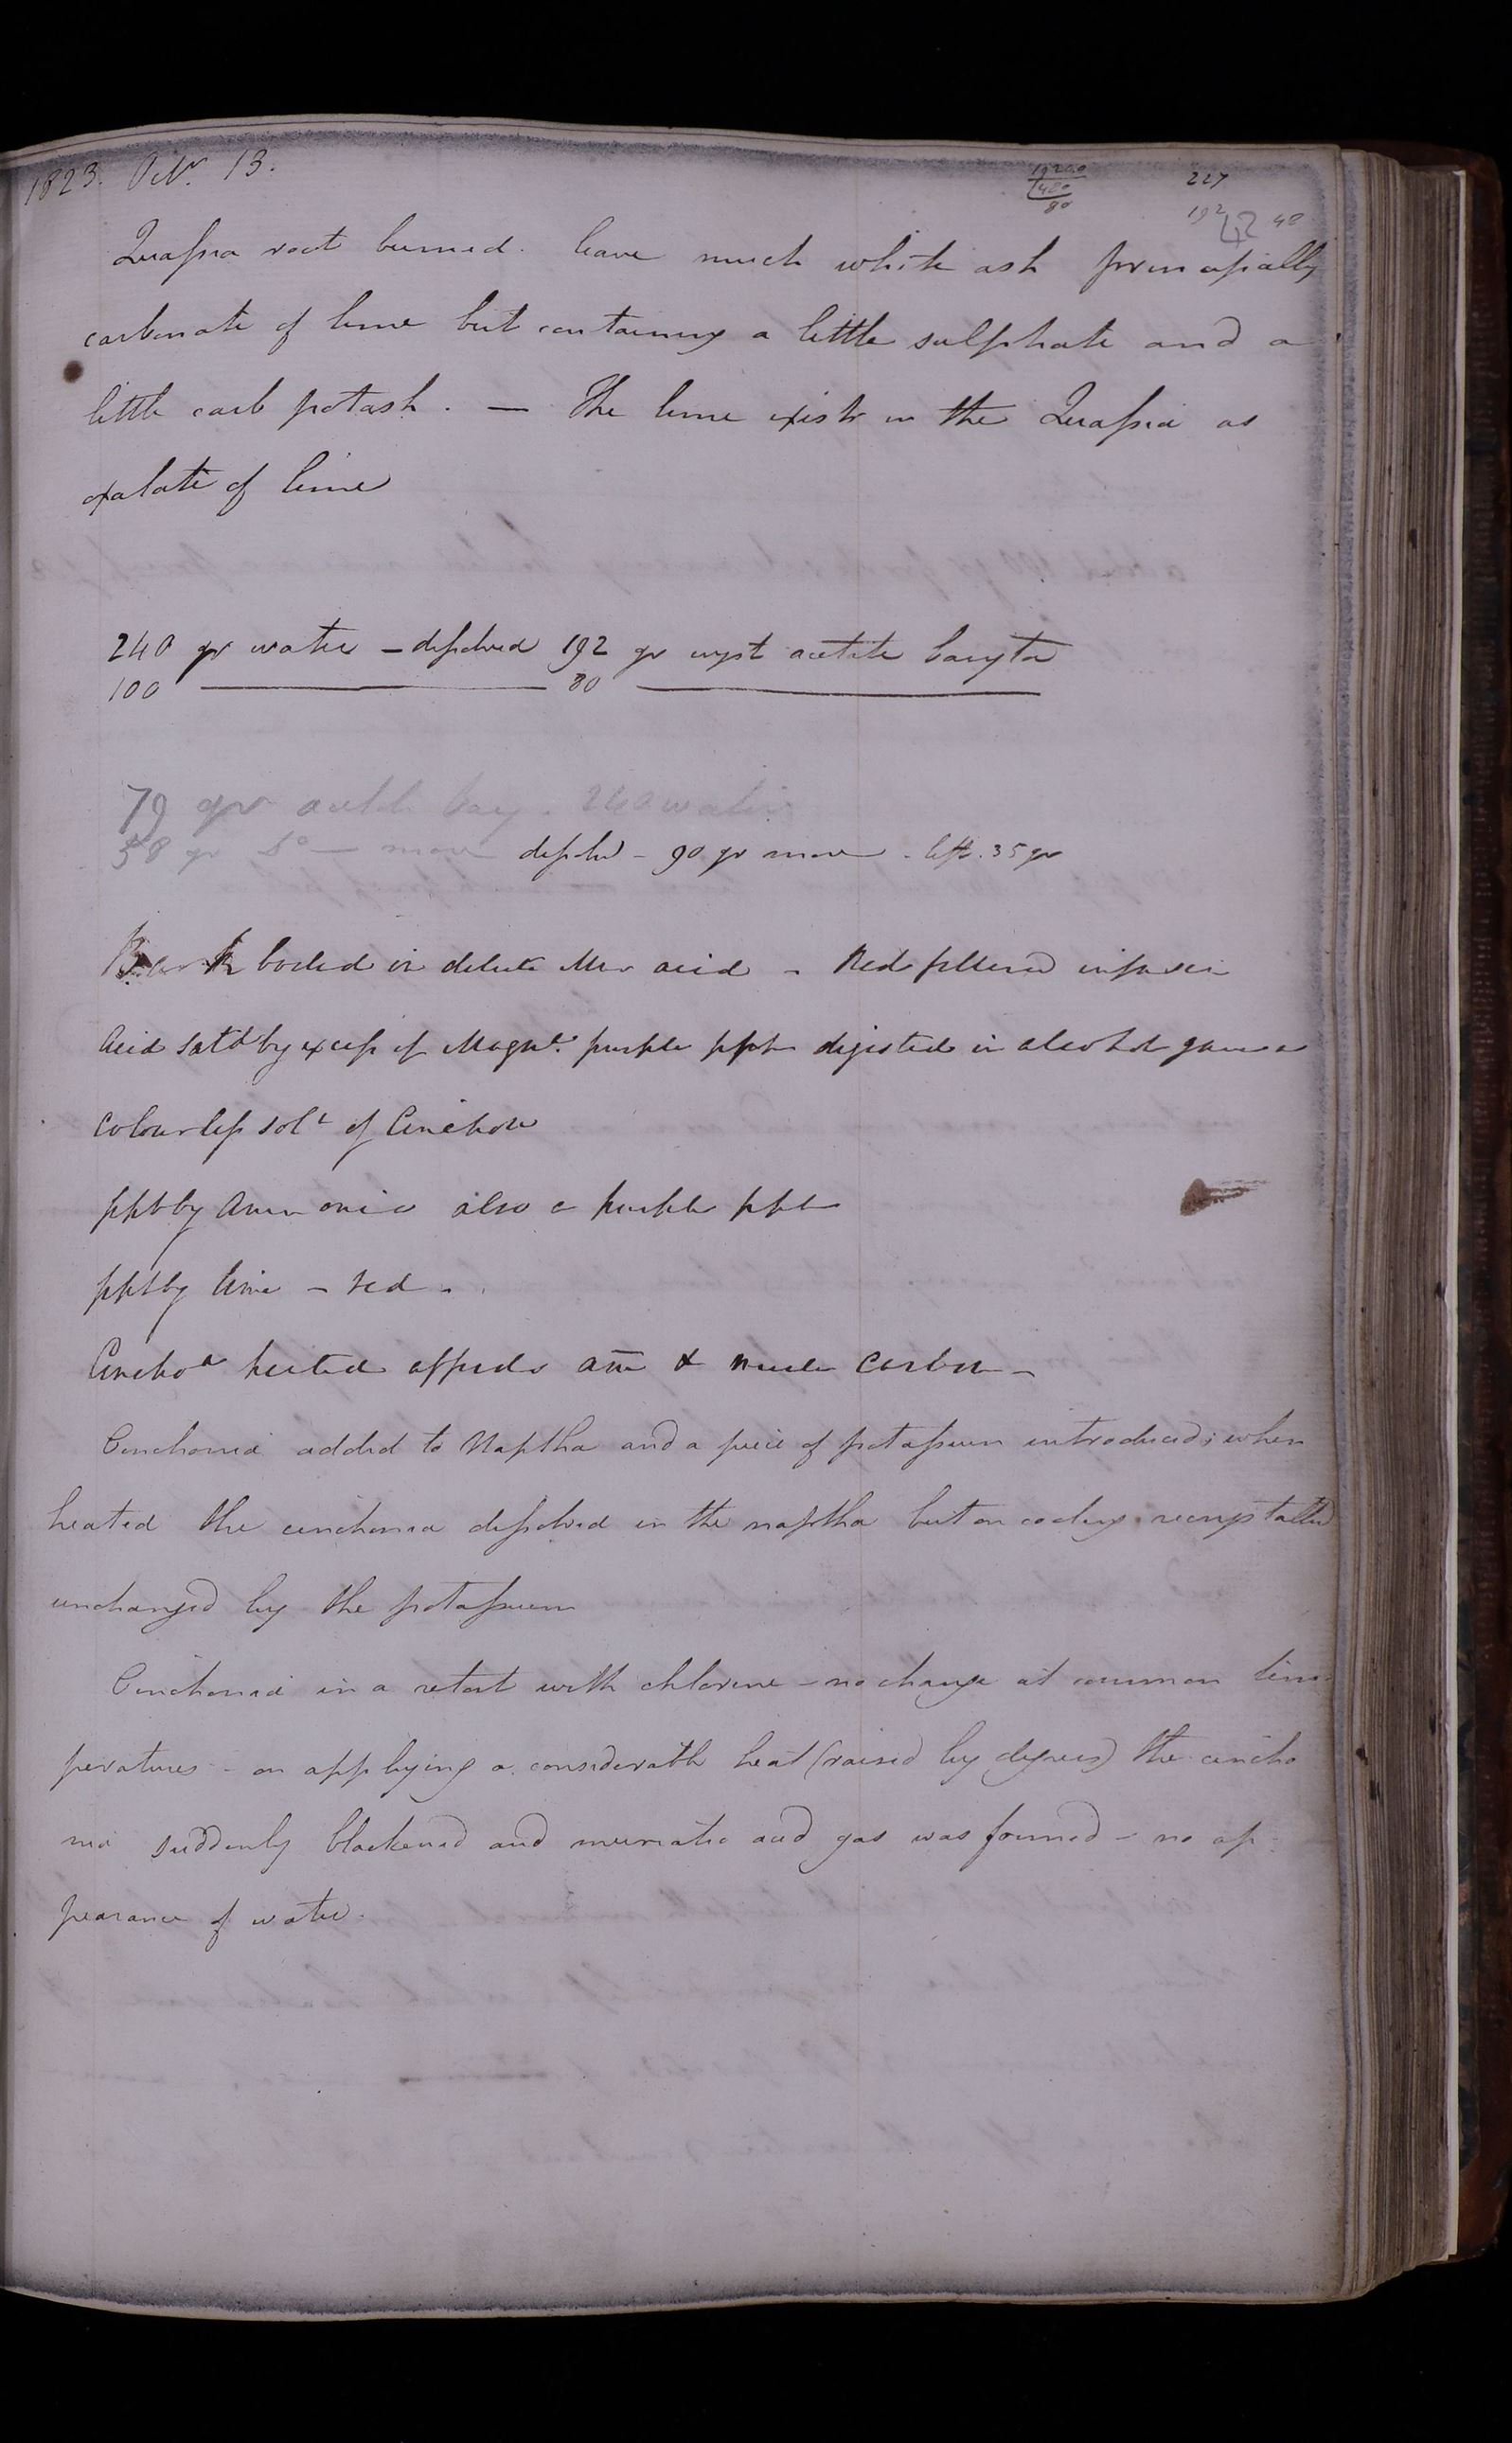 1823. Octr. 13.
227
19200
480
80
192 48
Quassia root burned. leave much white ash principally
carbonate of lime but containing a little sulphate and a
little carb potash. — The lime exists in the Quassia as
oxalate of lime
240 gr water — dissolved 192 gr cryst acetate baryta
100 ——— 80 ———
79 gr acete bary. 240 water
58 gr Do — more dissolvd - 90 gr more - left. 35 gr
Bark boiled in dilute Mur acid - Red filtered infusion
Acid satd by excess of Magna. purple ppt digested in alcohol gave a
colourless solt of Cinchon
ppt by Ammonia also a purple ppt
ppt by lime - red -
Cinchoa heated affords am & much carbon -
Cinchonia added to Naptha and a piece of potassium introduced; when
heated the cinchonia dissolved in the naptha but on cooling recrystallized
unchanged by the potassium
Cinchonia in a retort with chlorine - no change at common tem
peratures - on applying a considerable heat (raised by degrees) the cincho
nia suddenly blackened and muriatic acid gas was formed - no ap
pearance of water.